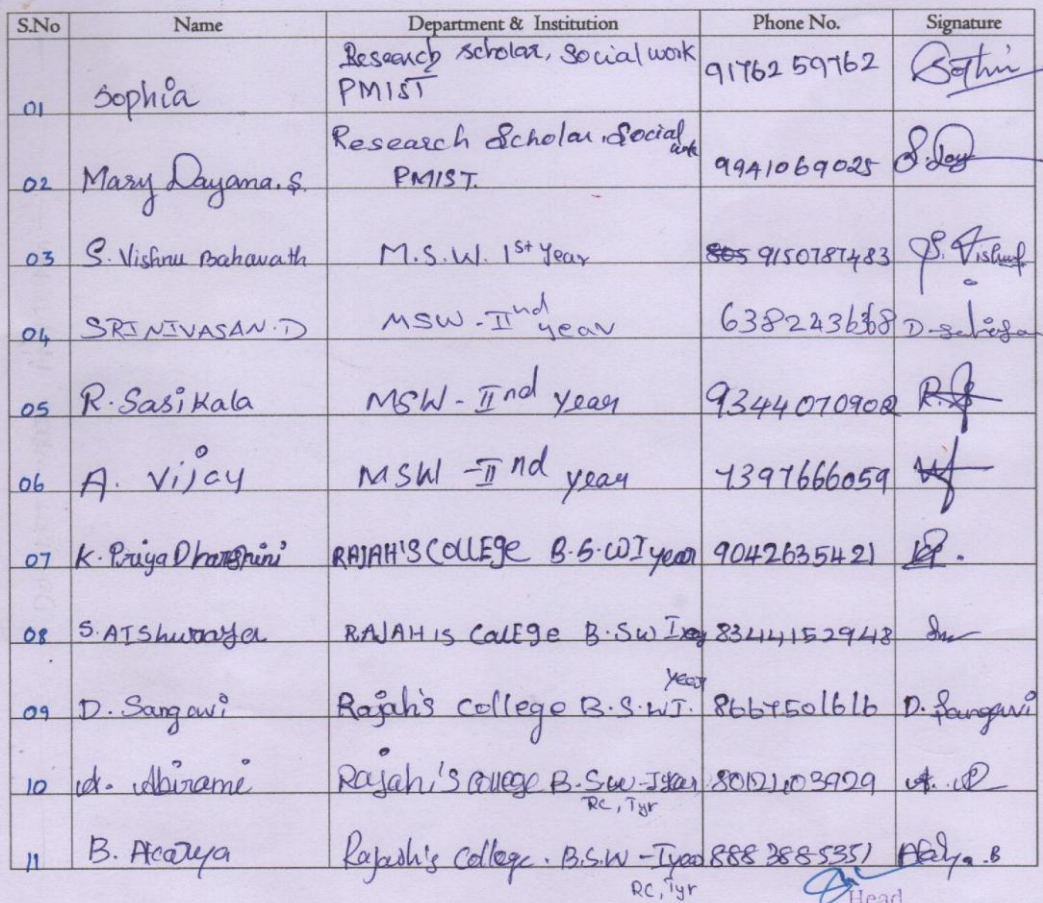 S.No Name Department & Institution Phone No. Signature
01 Sophia Research scholar, Social work PMIST 91762 59762
02 Mary Dayana. S. Research Scholar. Social work PMIST. 9941069025 S. Day
03 S. Vishnu Bahavath M.S.W. 1st year 805 9150787483 S. Vishnu
04 SRINIVASAN. D MSW - IInd year 6382243668
05 R. Sasikala MSW - IInd year 9344070902
06 A. Vijay MSW - IInd year 7397666059
07 K. Priya Dharshini RAJAH'S COLLEGE B.S.W I year 9042635421
08 RAJAH IS CollEge B.SW I 83441152948
09 D. Sangavi Rajah's college B.S.W I. year 8667501616 D. Sangavi
10 A. Abirami Rajah's college B.SW - I year 8012103929
RC, Tyr
11 B. Rajash's College. B.S.W - I year 888 3885351
RC, Tyr
Head